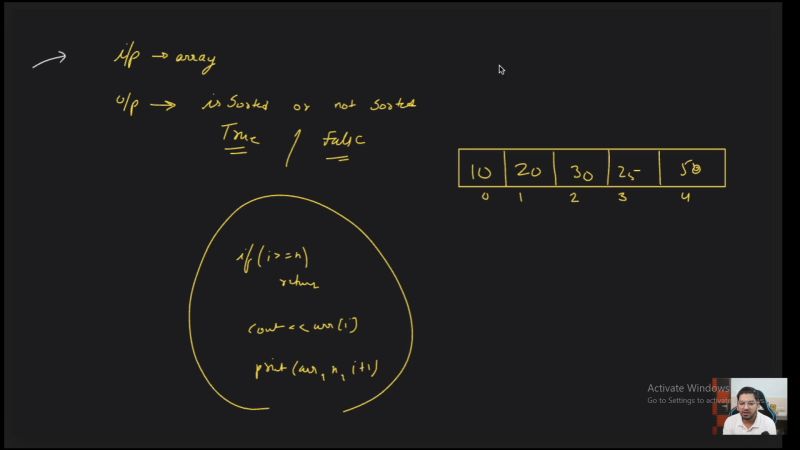 i/p → array
o/p → is Sorted or not Sorted
True / False
10 20 30 25 50
0 1 2 3 4
if (i >= n)
return
cout << arr[i]
print (arr, n, i+1)
Activate Windows
Go to Settings to activate